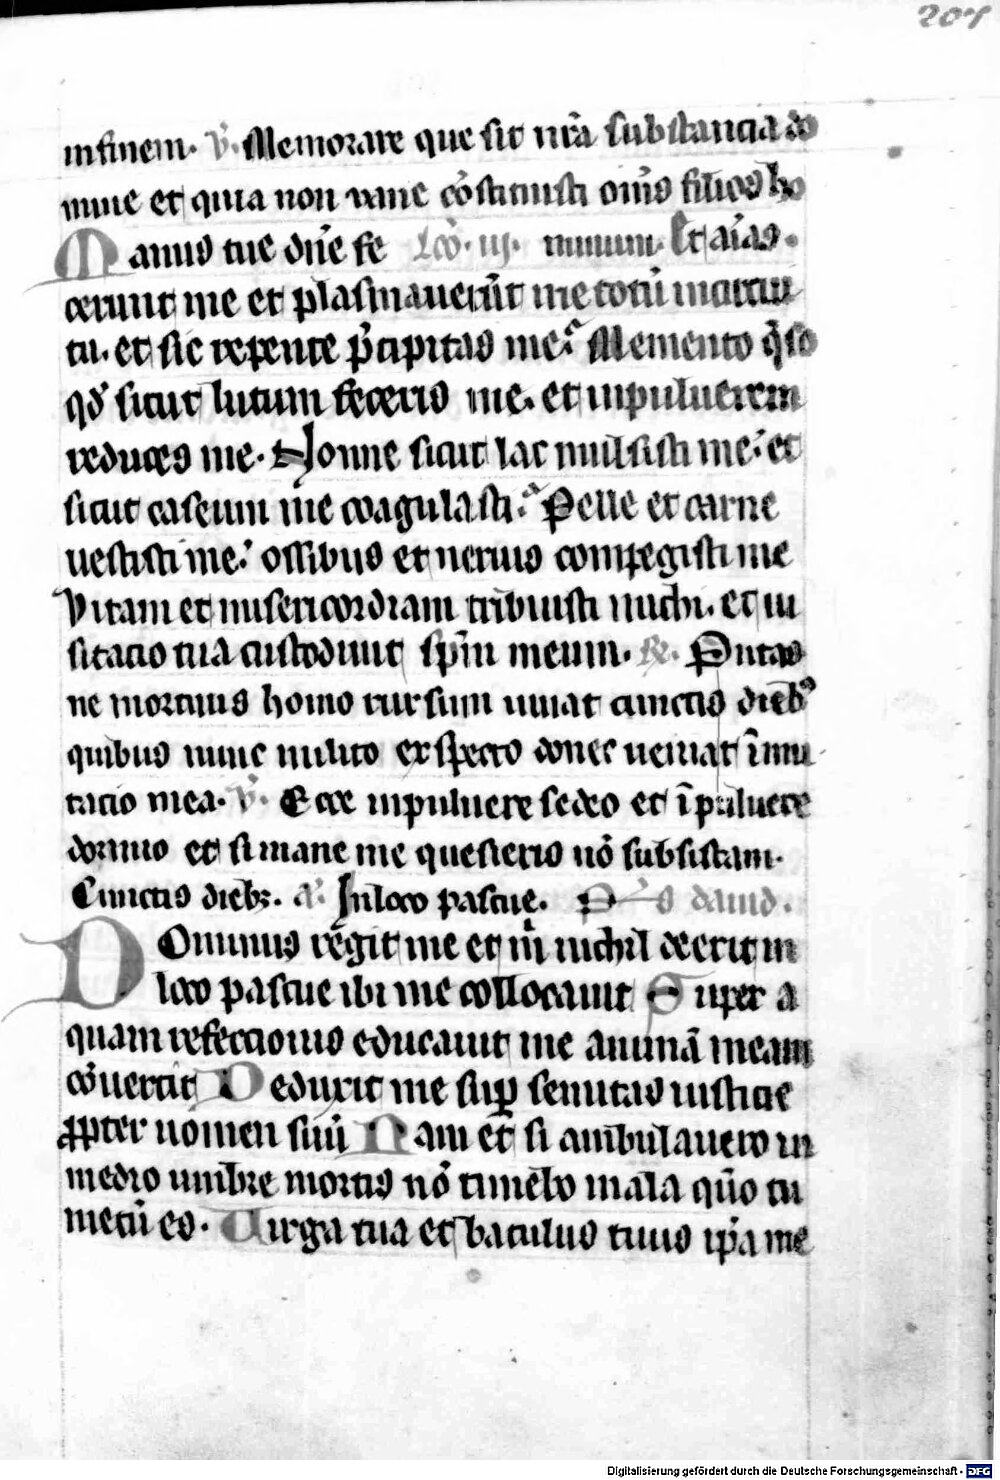 207
infinem. v̄. Memorare que sit nr̄a substancia do
mine et quia non vane cōstituisti om̄s filios ho
Manus tue dn̄e fe lcō. iij. minum. Et aīas.
cerunt me et plasmauerūt me totū in circui
tu. et sic repente p̄cipitas me. Memento q̄so
qd̛ sicut lutum feceris me. et inpuluerem
reduces me. Nonne sicut lac mulsisti me. et
sicut caseum me coagulasti. Pelle et carne
uestisti me. ossibus et neruis compegisti me
Vitam et misericordiam tribuisti michi. et ui
sitacio tua custodiuit sp̄m meum. R. Putas
ne mortuus homo rursum uiuat cunctis dieb⁹
quibus nunc milito exspecto donec ueniat īmu
tacio mea. v̄. Ecce inpuluere sedeo et ī puluere
dormio et si mane me quesieris nō subsistam.
Cunctis dieb;. a. Inloco pascue. P̄s dauid.
Dominus regit me et m̄ nichil deerit in
loco pascue ibi me collocauit Super a
quam refeccionis educauit me animā meam
cōuertit Deduxit me sup̱ semitas iusticie
ꝓpter nomen suū Nam et si ambulauero in
medio umbre mortis nō timebo mala qm̄o tu
mecū es. Uirga tua et baculus tuus ip̄a me
Digitalisierung gefördert durch die Deutsche Forschungsgemeinschaft - DFG